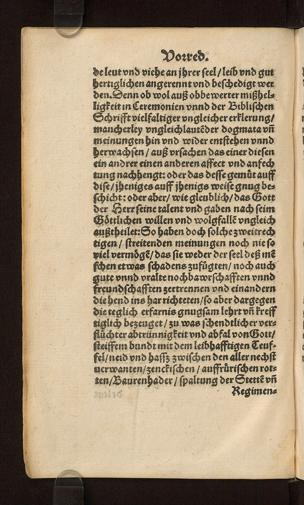 Vorred.
de leut vnd viehe an jhrer seel / leib vnd gut
hertiglichen angerennt vnd beschedigt wer
den. Denn ob wol auß obbewerter mißhel-
ligkeit in Ceremonien vnnd der Biblischen
Schrifft vielfaltiger vngleicher erklerung /
mancherley vngleichlautēder dogmata vñ
meinungen hin vnd wider entstehen vnnd
herwachsen / auß vrsachen das einer diesen
ein andrer einen anderen affect vnd anfech
tung nachhengt: oder das desse gemüt auff
dise / jheniges auff jhenigs weise gnug be-
schicht: oder aber / wie gleublich / das Gott
der Herr seine talent vnd gaben nach seim
Göttlichen willen vnd wolgfallē vngleich
außtheilet: So haben doch solche zweitrech
tigen / streitenden meinungen noch nie so
viel vermögē / das sie weder der seel deß mē
schen etwas schadens zufügten / noch auch
gute vnnd vralte nochbawrschafften vnnd
freundschafften zertrennen vnd einandern
die hend ins har richteten / so aber dargegen
die teglich erfarnis gnugsam lehrt vñ kreff
tiglich bezeuget / zu was schendtlicher ver-
flüchter abtrünnigkeit vnd abfal von Gott /
steiffem bundt mit dem leibhafftigen Teuf-
fel / neid vnd hassz zwischen den aller nechst
verwanten / zenckischen / auffrürischen rot-
ten / Baurenhader / spaltung der Stette vñ
Regimen-